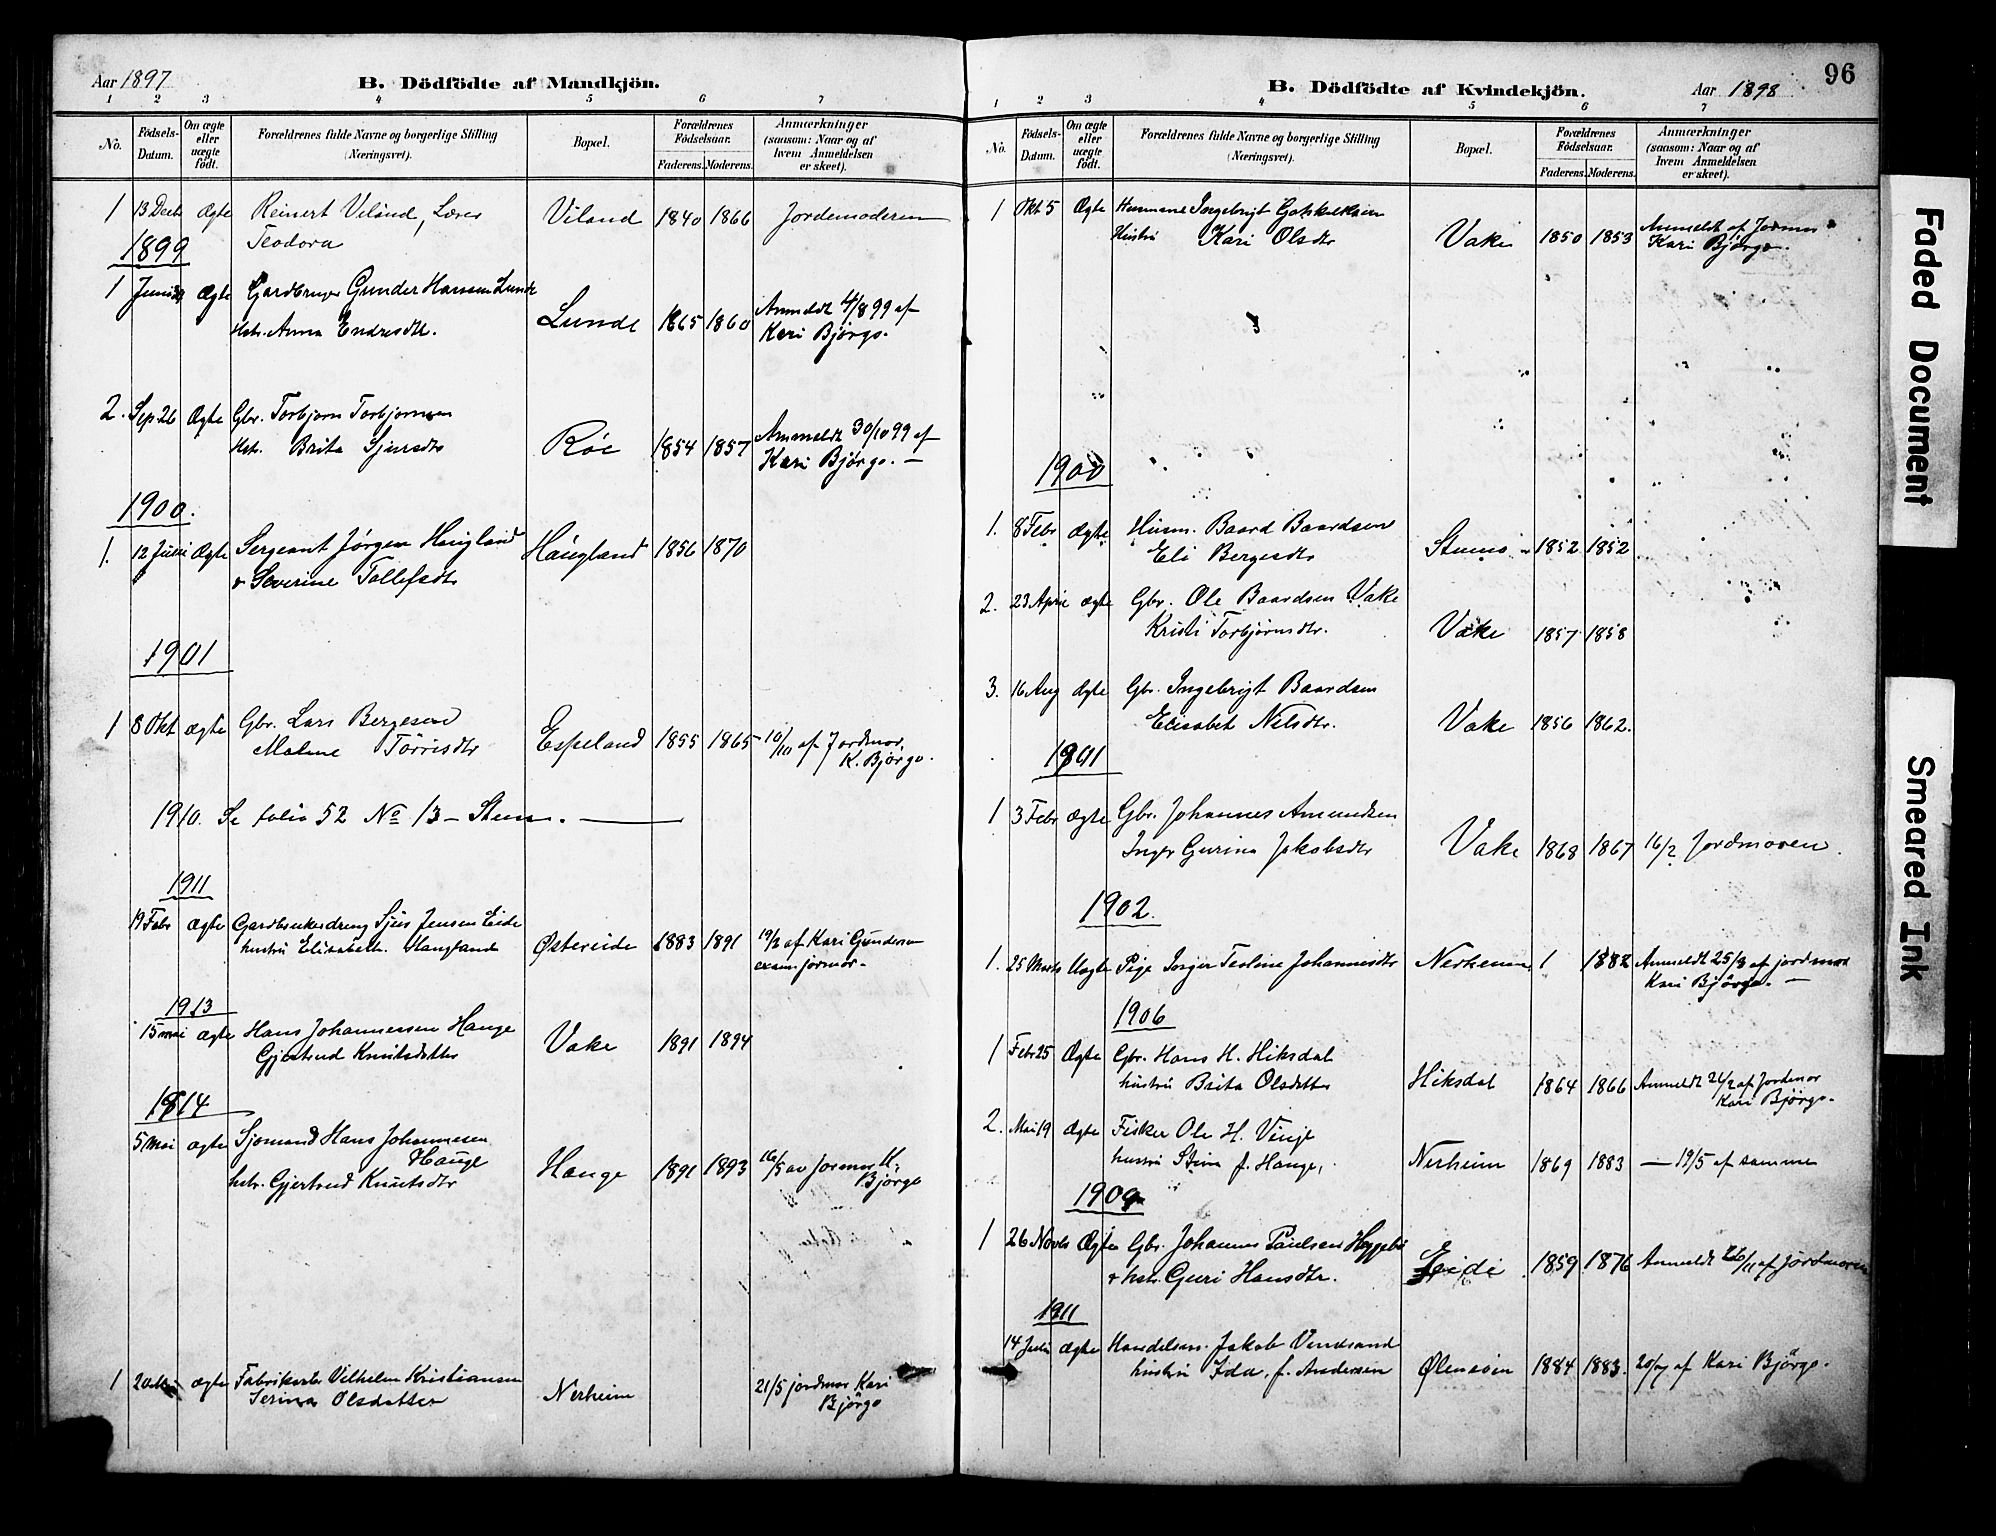 Aar 1897 B. Dödfödte af Mandkjön.
1 2 3 4 5 6 7
No. Födsels-Datum. Om ægte eller uægte födt. Forældrenes fulde Navne og borgerlige Stilling (Næringsvei). Bopæl. Forældrenes Födselsaar. Faderens. Moderens. Anmærkninger (saasom: Naar og af hvem Anmeldelsen er skeet).
1 13 Decb Ægte Reinert Viland, Lærer Viland 1840 1866 Jordemoderen
Teodora
1899
1 Juni Ægte Gardbruger Gunder Hansen Lunde
Hst. Anna Endresdtr. Lunde 1865 1860 Anmeldt 4/8 99 af
Kari Bjørgo.
2. Sep. 26 Ægte Gbr. Torbjørn Torbjørnsen
Hst. Brita Sjursdtr Röe 1854 1857 Anmeldt 30/10 99 af
Kari Bjørgo. —
1900.
1. 12 Juni Ægte Sergeant Jørgen Haugland Haugland 1856 1870
& Severine Tollefsdtr
1901
1 8 Okt ægte Gbr. Lars Bergesen
Malene Tørrisdtr Espeland 1855 1865 10/10 af Jordmor.
K. Bjørgo.
1910. Se folio 52 No 13 — Stum. —
1911
19 Febr ægte Gardbrukerdreng Sjur Jensen Eide
hustru Elisabeth Haugland Østereide 1883 1891 19/2 af Kari Gundersen
exam jormor.
1913
15 mai ægte Hans Johannessen Hauge
Gjertrud Knutsdatter Vake 1891 1894
1914
5 Mai ægte Sjømand Hans Johannesen
Hauge
hstr. Gjertrud Knutsdtr Hauge 1891 1893 16/5 av Jormor K.
Bjørgo
1 20 ægte Fabrikarb Vilhelm Kristiansen
Serina Olsdatter Nerheim 21/5 jordmor Kari
Bjørgo
96
B. Dödfödte af Kvindekjön. Aar 1898
1 2 3 4 5 6 7
No. Födsels-Datum. Om ægte eller uægte födt. Forældrenes fulde Navne og borgerlige Stilling (Næringsvei). Bopæl. Forældrenes Födselsaar. Faderens. Moderens. Anmærkninger (saasom: Naar og af hvem Anmeldelsen er skeet).
1 Okt 5 Ægte Husmand Ingebrigt Gotskalksen
Hustru Kari Olsdtr Vake 1850 1853 Anmeldt af Jormor
Kari Bjørgo.
1900
1. 8 Febr ægte Husm. Baard Baardsen
Eli Bergesdtr 1852 1852
2. 23 April ægte Gbr. Ole Baardsen Vake
Kristi Torbjørnsdtr. Vake 1857 1858
3. 16 Aug ægte Gbr. Ingebrigt Baardsen
Elisabet Nilsdtr. Vake 1856 1862.
1901
1 3 Febr ægte Gbr. Johannes Amundsen
Inger Gurina Jakobsdtr Vake 1868 1867 16/2 Jordmoren.
1902.
1. 25 Marts Uægte Pige Inger Teoline Johannesdtr Nerheim 1 1882 Anmeldt 25/3 af jordmor
Kari Bjørgo. —
1906
1 Febr 25 Ægte Gbr. Hans H. Hiksdal
hustru Brita Olsdatter Hiksdal 1864 1866 Anmeldt 26/2 af Jordmor
Kari Bjørgo.
2. Mai 19 Ægte Fisker Ole H. Vinje
hustru Stina f. Hauge, Nerheim 1869 1883 — 19/5 af samme
1909
1 26 Novb Ægte Gbr. Johannes Paulsen Heggebø
& hst. Guri Hansdtr. Eide 1859 1876 Anmeldt 26/11 af Jordmoren
1911
14 Juli ægte Handelsm. Jakob Vindsand
hustru Ida, f. Andersen Ølensøen 1884 1883. 20/7 af Kari Bjørgo.
Faded Document
Smeared Ink